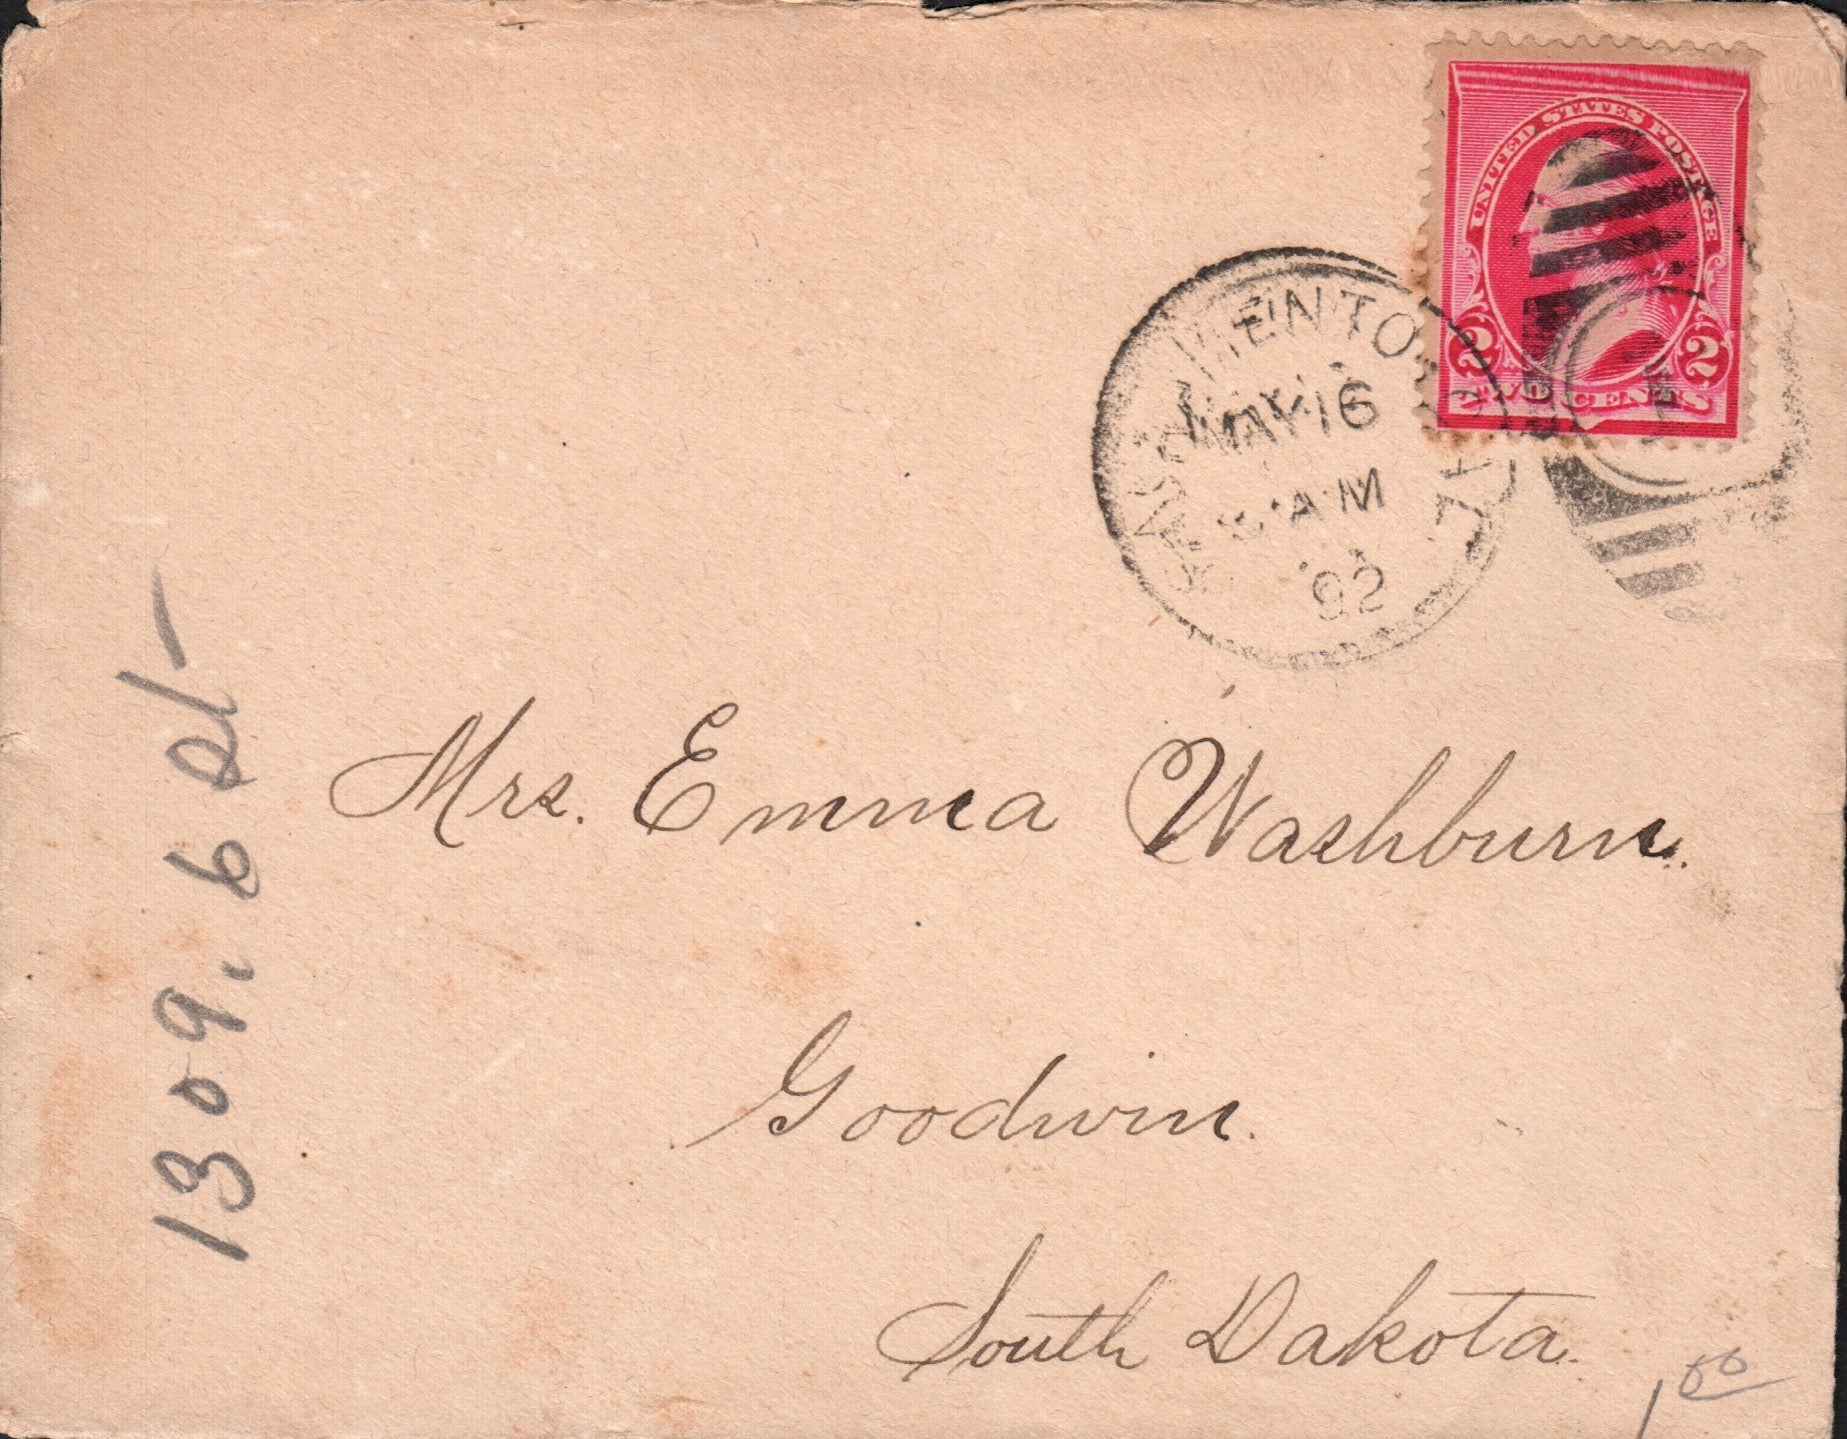 UNITED STATES POSTAGE
2 2
TWO CENTS
SACRAMENTO CAL
MAY 16
AM
'92
Mrs. Emma Washburn.
Goodwin.
South Dakota.
1309. 6 St
1 00